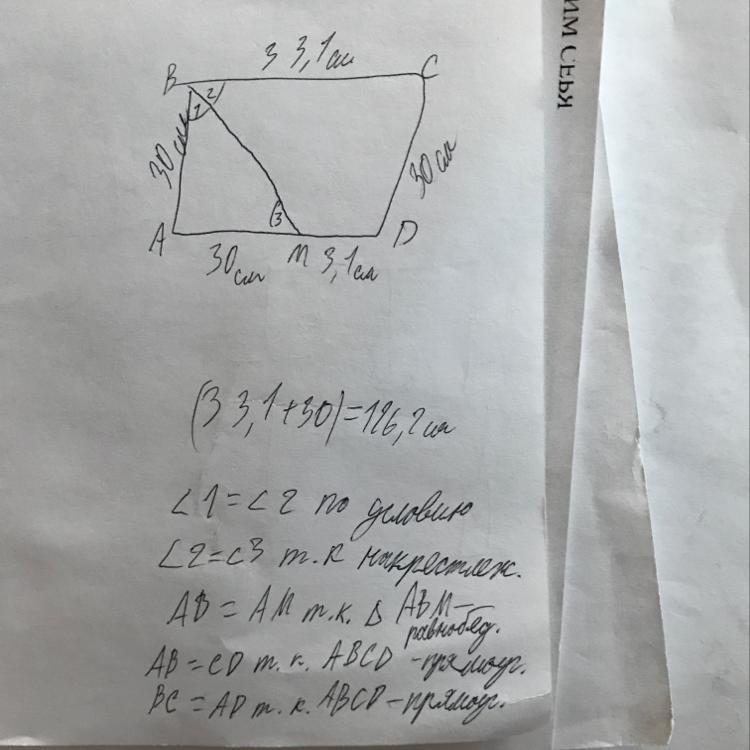 ИМ СЕБЯ
33,1см
B C
2
1
30см
30см
3
A M D
30см 3,1см
(33,1+30)=126,2см
∠1=∠2 по условию
∠2=∠3 т.к накрестлеж.
AB = AM т.к. Δ ABM-
равнобед.
AB=CD т.к. ABCD-прямоуг.
BC=AD т.к. ABCD-прямоуг.